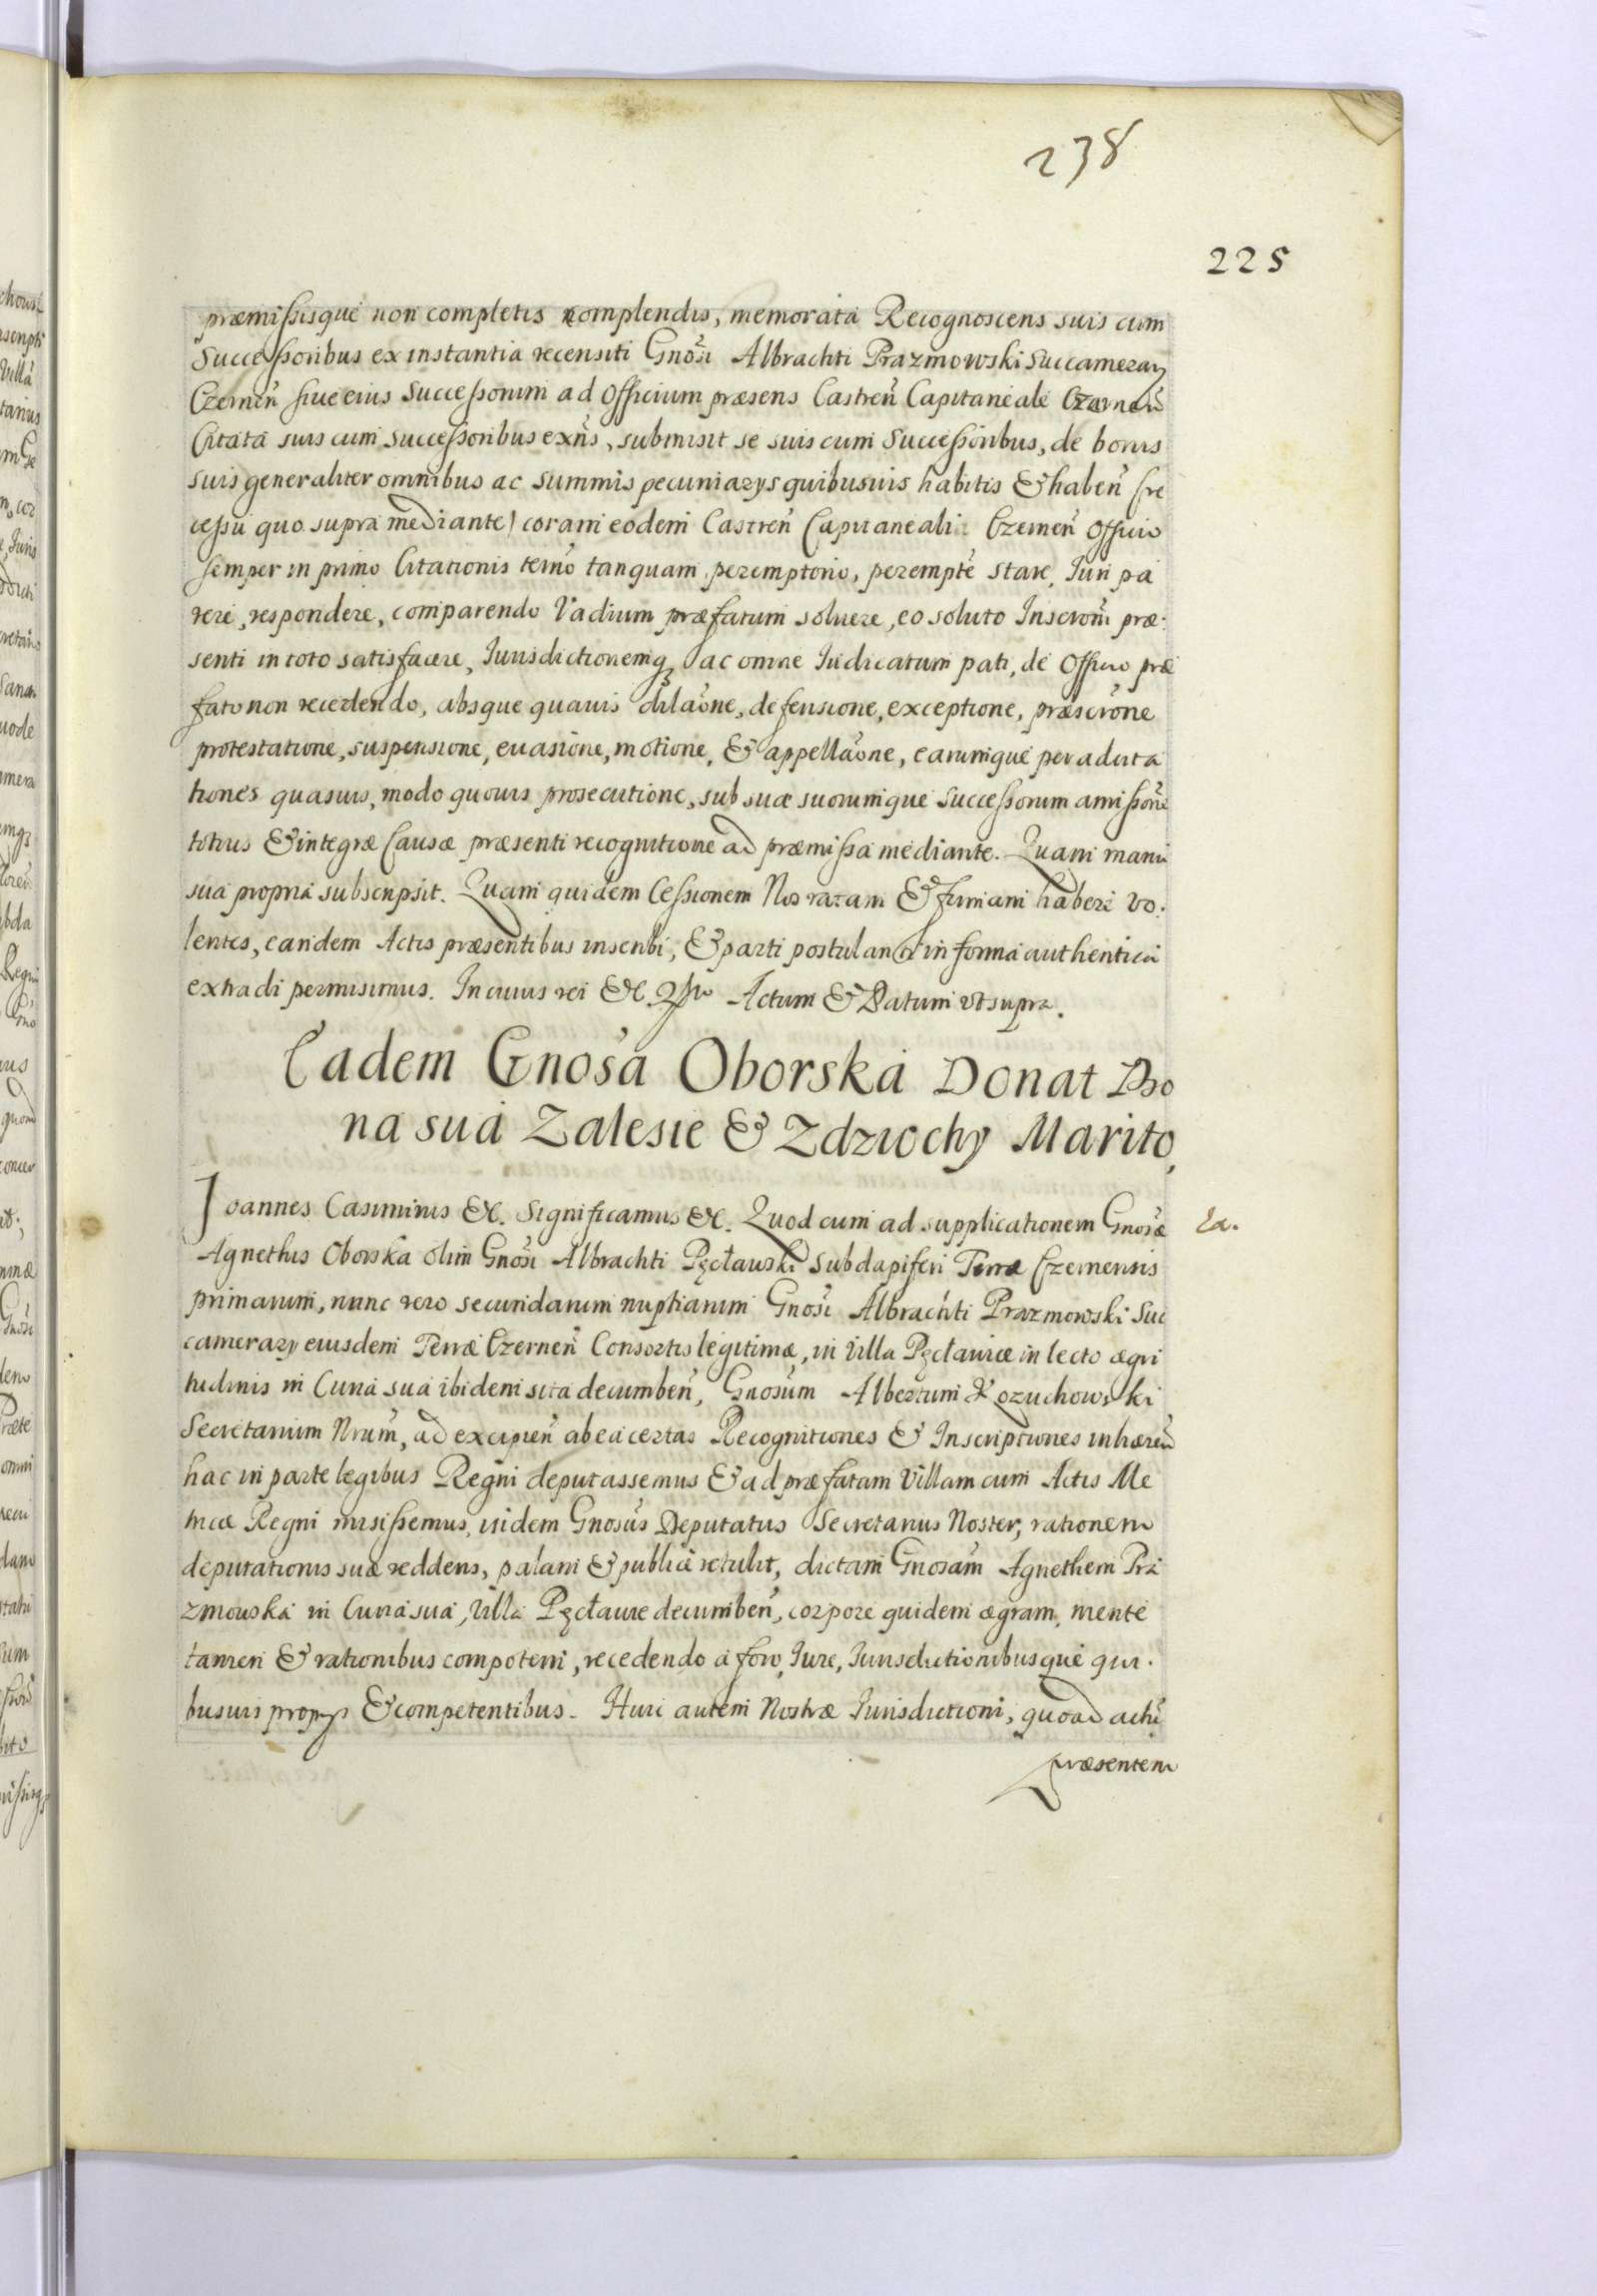 238
225
præmissisque non completis complendis, memorata Recognoscens suis cum
Successoribus ex instantia recensiti Gnosi Albrachti Prazmowski Succamerary
Czernen siue eius Successorum ad Officium præsens Castren Capitaneale Czernen
Citata suis cum successoribus exns, submisit se suis cum Successoribus, de bonis
suis generaliter omnibus ac summis pecuniarys quibusuis habitis & haben (re
cessu quo supra mediante) coram eodem Castren Capitaneali Czernen Officio
semper in primo Citationis termo tanquam peremptorio, perempte stare, Juri pa
rere, respondere, comparendo Vadium præfatum soluere, eo soluto Inscroni præ:
senti in toto satisfacere, Jurisdictionemq ac omne Judicatum pati, de Officio præ
fato non recedendo, absque quauis dilaone, defensione, exceptione, præscrone
protestatione, suspensione, euasione, motione, & appellaone, earumque per aducta
tiones quasuis, modo quouis prosecutione, sub suæ suorumque Successorum amissone
totius & integræ Causæ præsenti recognitione ad præmissa mediante. Quam manu
sua propria subscripsit. Quam quidem Cessionem Nos ratam & firmam haberi vo:
lentes, eandem Actis præsentibus inscribi, & parti postulanti in forma authentica
extradi permisimus. In cuius rei &c. Actum & Datum vt supra.
Eadem Gnosa Oborska Donat Bo
na sua Zalesie & Zdziochy Marito,
Joannes Casimirus &c. Significamus &c. Quod cum ad supplicationem Gnosæ
Agnethis Oborska olim Gnosi Albrachti Pęcławski Subdapiferi Terræ Czernensis
primarum, nunc vero secundarum nuptiarum Gnosi Albrachti Prazmowski Suc
camerary eiusdem Terræ Czernen Consortis legitimæ, in Villa Pęcławice in lecto ægri
tudinis in Curia sua ibidem sita decumben, Gnosum Albertum Kozuchowski
Secretarium Nrum, ad excipien ab ea certas Recognitiones & Inscriptiones inhæren
hac in parte legibus Regni deputassemus & ad præfatam Villam cum Actis Me
tricæ Regni misissemus, isidem Gnosus Deputatus Secretarius Noster, rationem
deputationis suæ reddens, palam & publice retulit, dictam Gnosam Agnethem Pra
zmouska in Curia sua, Villa Pęcławice decumben, corpore quidem ægram, mente
tamen & rationibus compotem, recedendo a foro, Jure, Jurisdictionibusque qui:
busuis proprys & competentibus. Huic autem Nostræ Jurisdictioni, quoad actu
præsentem